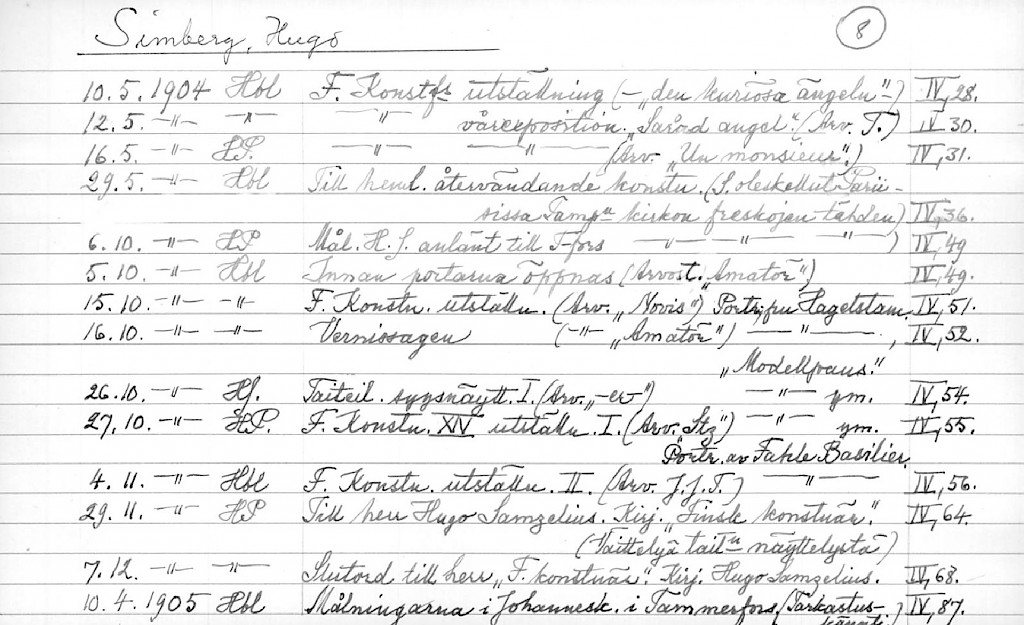 Simberg, Hugo
8
10.5.1904 Hbl F. Konstfs utställning (– „den kuriösa ängeln"–) IV,28.
12.5. –"– –"– –"– vårexposition. „Sårad ängel". (Arv. T.) IV 30.
16.5. –"– HP. –"– –"– (Arv. „Un monsieur".) IV,31.
29.5. –"– Hbl Till heml. återvändande konstn. (S. oleskellut Parii-
sissa Tamp:n kirkon freskojen tähden) IV,36.
6.10. –"– HP Mål. H. S. anlänt till T-fors –"– –"– –"– ) IV,49
5.10. –"– Hbl Innan portarna öppnas (Arvost. „Amatör") IV,49.
15.10. –"– –"– F. Konstn. utställn. (Arv. „Novis") Portr. fru Hagelstam IV,51.
16.10. –"– –"– Vernissagen (–"– „Amatör") –"– , IV,52.
„Modellpaus."
26.10. –"– Hf. Taiteil. syysnäytt. I. (Arv. „–er") –"– ym. IV,54.
27.10. –"– HP. F. Konstn. XIV utställn. I. (Arv. „Stg") –"– ym. IV,55.
Portr. av Fahle Basilier.
4.11. –"– Hbl F. Konstn. utställn. II. (Arv. J.J.T.) –"– IV,56.
29.11. –"– HP Till herr Hugo Samzelius. Kirj. „Finsk konstnär". IV,64.
(Väittelyä tait:n näyttelystä)
7.12. –"– –"– Slutord till herr „F. konstnär". Kirj. Hugo Samzelius. IV,68.
10.4.1905 Hbl Målningarna i Johannesk. i Tammerfors (Tarkastus- IV,87.